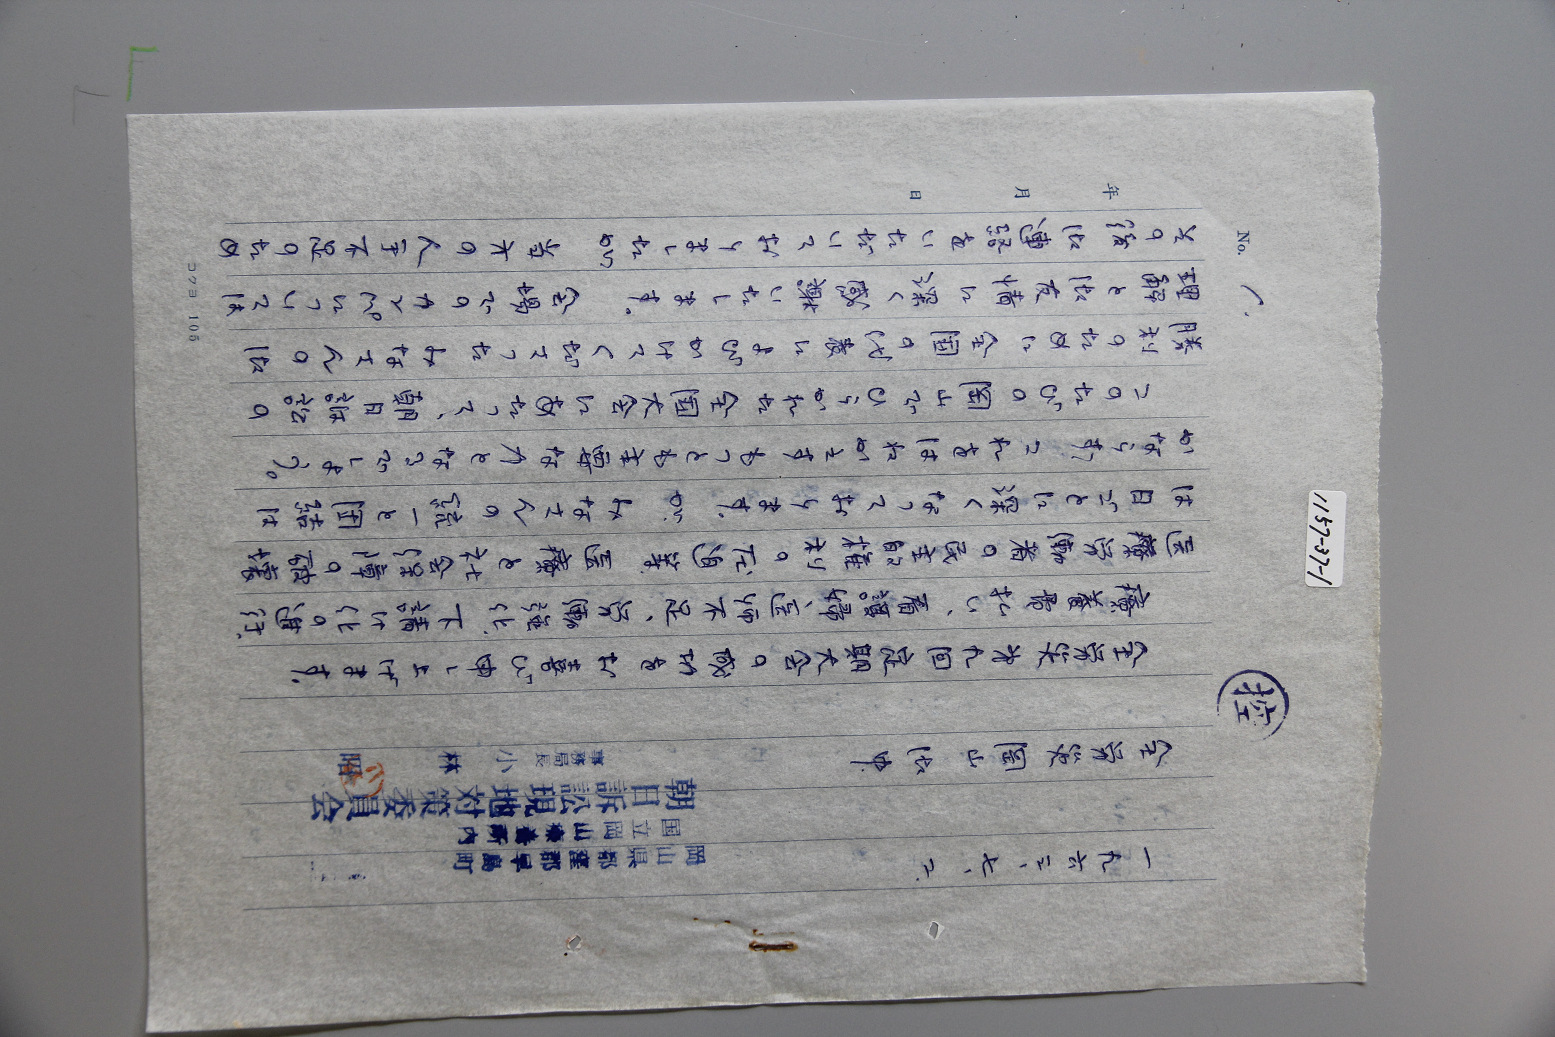 1137-37-1
控
No. 1.
年 月 日
一九六三、七、二.
岡山県都窪郡早島町
国立岡山療養所内
朝日訴訟現地対策委員会
事務局長 小林
全労災岡山御中
全労災第九回定期大会の成功をお喜び申し上げます。
療養費払い、看護婦、医師不足、労働強化、下請け化の進行、
医療労働者の民主的権利の圧迫等、医療と社会保障の破壊
は日ごとに深くなっております。が、みなさんの統一と団結は
かならず、これをはねかえすもっとも重要な力となるでしょう。
このたびの岡山でひらかれた全国大会にあたって、朝日訴訟の
勝利のために全国の代表によびかけて下さったみなさんの御
理解と御友情に深く感謝いたします。 会場でのカンパについては
その節御連絡をいただいておりましたが 当方の人手不足のため
コクヨ 105